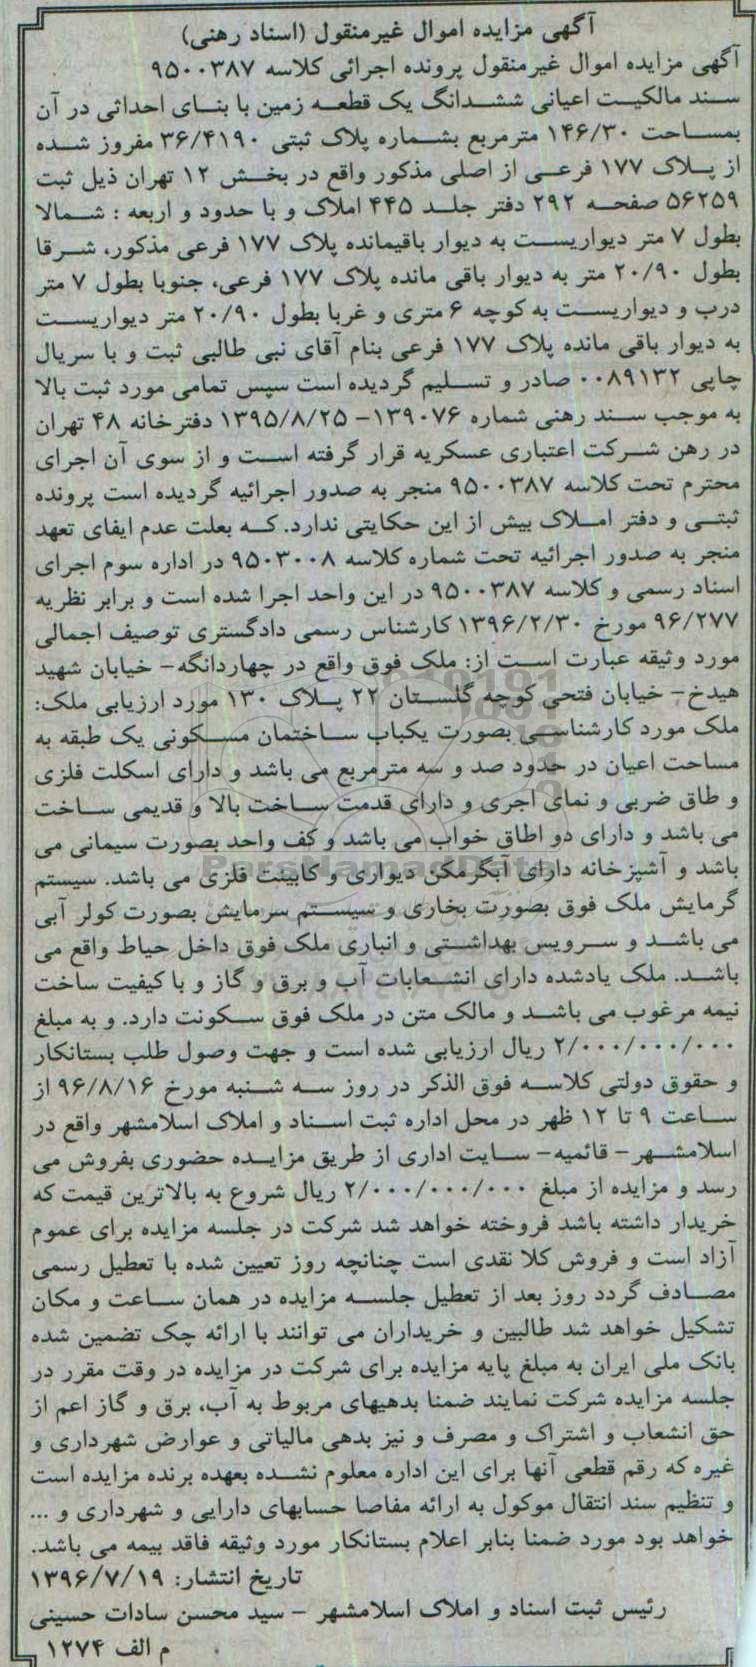 آگهی مزایده اموال غیرمنقول (اسناد رهنی)
آگهی مزایده اموال غیرمنقول پرونده اجرائی کلاسه ۹۵۰۰۳۸۷
سند مالکیت اعیانی ششدانگ یک قطعه زمین با بنای احداثی در آن
بمساحت ۱۴۶/۳۰ مترمربع بشماره پلاک ثبتی ۳۶/۴۱۹۰ مفروز شده
از پلاک ۱۷۷ فرعی از اصلی مذکور واقع در بخش ۱۲ تهران ذیل ثبت
۵۶۲۵۹ صفحه ۲۹۲ دفتر جلد ۴۴۵ املاک و با حدود و اربعه : شمالا
بطول ۷ متر دیواریست به دیوار باقیمانده پلاک ۱۷۷ فرعی مذکور، شرقا
بطول ۲۰/۹۰ متر به دیوار باقی مانده پلاک ۱۷۷ فرعی، جنوبا بطول ۷ متر
درب و دیواریست به کوچه ۶ متری و غربا بطول ۲۰/۹۰ متر دیواریست
به دیوار باقی مانده پلاک ۱۷۷ فرعی بنام آقای نبی طالبی ثبت و با سریال
چاپی ۰۰۸۹۱۳۲ صادر و تسلیم گردیده است سپس تمامی مورد ثبت بالا
به موجب سند رهنی شماره ۱۳۹۰۷۶- ۱۳۹۵/۸/۲۵ دفترخانه ۴۸ تهران
در رهن شرکت اعتباری عسکریه قرار گرفته است و از سوی آن اجرای
محترم تحت کلاسه ۹۵۰۰۳۸۷ منجر به صدور اجرائیه گردیده است پرونده
ثبتی و دفتر املاک بیش از این حکایتی ندارد. که بعلت عدم ایفای تعهد
منجر به صدور اجرائیه تحت شماره کلاسه ۹۵۰۳۰۰۸ در اداره سوم اجرای
اسناد رسمی و کلاسه ۹۵۰۰۳۸۷ در این واحد اجرا شده است و برابر نظریه
۹۶/۲۷۷ مورخ ۱۳۹۶/۲/۳۰ کارشناس رسمی دادگستری توصیف اجمالی
مورد وثیقه عبارت است از: ملک فوق واقع در چهاردانگه- خیابان شهید
هیدخ- خیابان فتحی کوچه گلستان ۲۲ پلاک ۱۳۰ مورد ارزیابی ملک:
ملک مورد کارشناسی بصورت یکباب ساختمان مسکونی یک طبقه به
مساحت اعیان در حدود صد و سه مترمربع می باشد و دارای اسکلت فلزی
و طاق ضربی و نمای اجری و دارای قدمت ساخت بالا و قدیمی ساخت
می باشد و دارای دو اطاق خواب می باشد و کف واحد بصورت سیمانی می
باشد و آشپزخانه دارای آبگرمکن دیواری و کابینت فلزی می باشد. سیستم
گرمایش ملک فوق بصورت بخاری و سیستم سرمایش بصورت کولر آبی
می باشد و سرویس بهداشتی و انباری ملک فوق داخل حیاط واقع می
باشد. ملک یادشده دارای انشعابات آب و برق و گاز و با کیفیت ساخت
نیمه مرغوب می باشد و مالک متن در ملک فوق سکونت دارد. و به مبلغ
۲/۰۰۰/۰۰۰/۰۰۰ ریال ارزیابی شده است و جهت وصول طلب بستانکار
و حقوق دولتی کلاسه فوق الذکر در روز سه شنبه مورخ ۹۶/۸/۱۶ از
ساعت ۹ تا ۱۲ ظهر در محل اداره ثبت اسناد و املاک اسلامشهر واقع در
اسلامشهر- قائمیه- سایت اداری از طریق مزایده حضوری بفروش می
رسد و مزایده از مبلغ ۲/۰۰۰/۰۰۰/۰۰۰ ریال شروع به بالاترین قیمت که
خریدار داشته باشد فروخته خواهد شد شرکت در جلسه مزایده برای عموم
آزاد است و فروش کلا نقدی است چنانچه روز تعیین شده با تعطیل رسمی
مصادف گردد روز بعد از تعطیل جلسه مزایده در همان ساعت و مکان
تشکیل خواهد شد طالبین و خریداران می توانند با ارائه چک تضمین شده
بانک ملی ایران به مبلغ پایه مزایده برای شرکت در مزایده در وقت مقرر در
جلسه مزایده شرکت نمایند ضمنا بدهیهای مربوط به آب، برق و گاز اعم از
حق انشعاب و اشتراک و مصرف و نیز بدهی مالیاتی و عوارض شهرداری و
غیره که رقم قطعی آنها برای این اداره معلوم نشده بعهده برنده مزایده است
و تنظیم سند انتقال موکول به ارائه مفاصا حسابهای دارایی و شهرداری و ...
خواهد بود مورد ضمنا بنابر اعلام بستانکار مورد وثیقه فاقد بیمه می باشد.
تاریخ انتشار: ۱۳۹۶/۷/۱۹
رئیس ثبت اسناد و املاک اسلامشهر - سید محسن سادات حسینی
م الف ۱۲۷۴
ParsNamadData